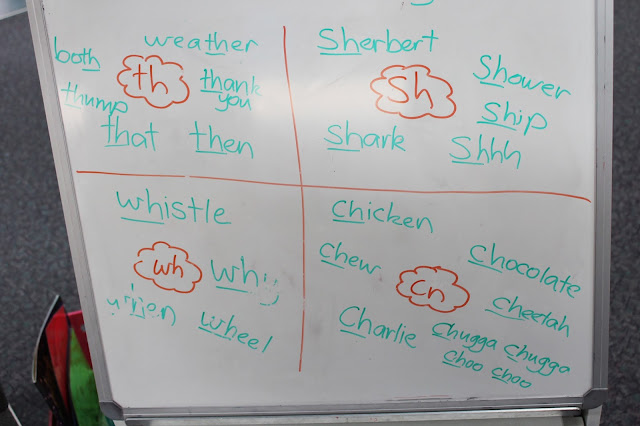 weather
both
th
thank
you
thump
that
then
Sherbert
Sh
Shower
Ship
Shark
Shhh
whistle
wh
why
wheel
Chicken
Chew
Chocolate
ch
cheetah
Charlie
Chugga Chugga
choo choo